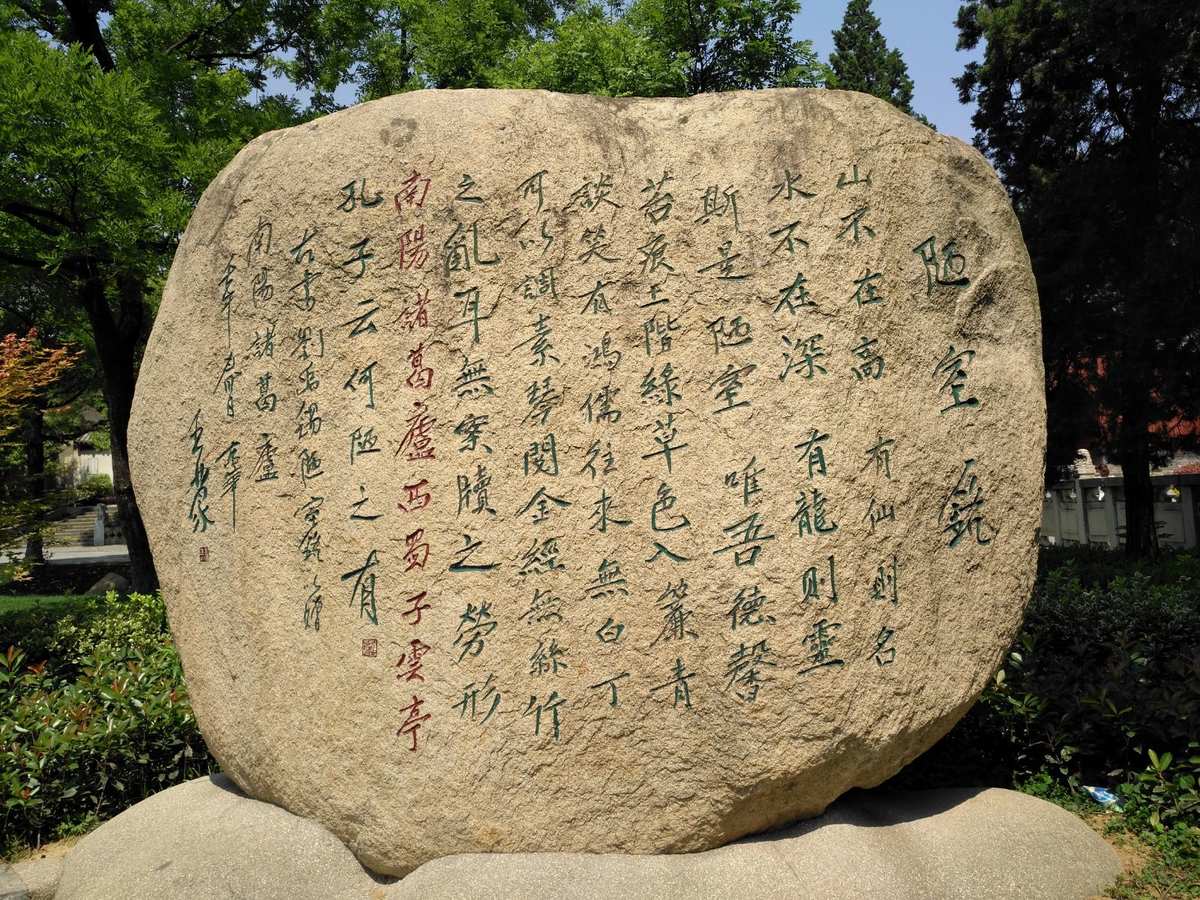 陋室銘
山不在高有仙則名
水不在深有龍則靈
斯是陋室唯吾德馨
苔痕上階綠草色入簾青
談笑有鴻儒往來無白丁
可以調素琴閱金經無絲竹
之亂耳無案牘之勞形
南陽諸葛廬西蜀子雲亭
孔子云何陋之有
右書劉禹錫陋室銘
南陽諸葛廬